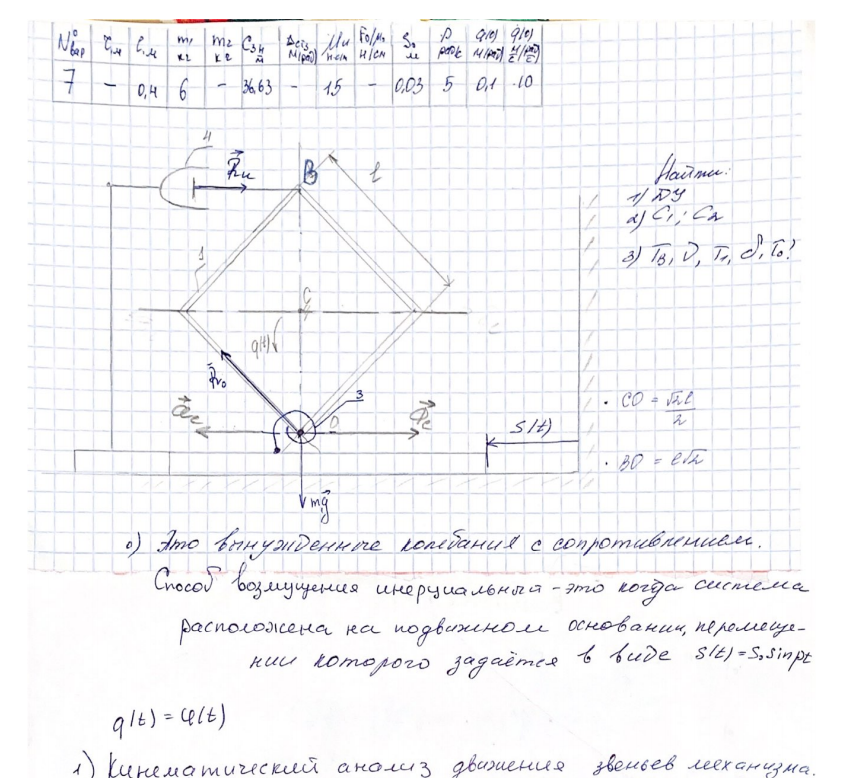 № вар | r,м | l,м | m₁ кг | m₂ кг | C₃ Н/м | μ и Н·с/м | S₀ м | p рад/c | q(0) м(рад) | q̇(0)
7 | - | 0,4 | 6 | - | 36,63 | - | 15 | - | 0,03 | 5 | 0,1 | 10
4
R⃗и
B
l
1
C
q(t)
3
O
S(t)
mg⃗
Найти:
1) ДУ
2) C₁; C₂
3) Tв, D, T₁, δ, T₀?
· CO = √2l/2
· BO = l√2
0) Это вынужденные колебания с сопротивлением.
Способ возмущения инерциальный - это когда система
расположена на подвижном основании, перемеще-
нии которого задаётся в виде S(t)=S₀sinpt
q(t) = φ(t)
1) Кинематический анализ движения звеньев механизма.